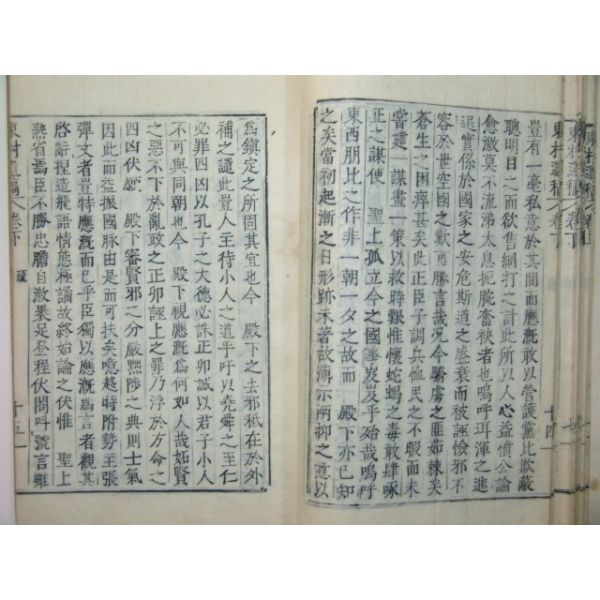 豈有一毫私意於其間而應漑敢以營護黨比欺蔽
聰明目之而欲售網打之計此所以人心益憤公論
愈激莫不流涕太息扼腕奮袂者也嗚呼珥渾之進
退實係於國家之安危斯道之盛衰而被誣憸邪不
容於世空國之歎可勝言哉况今驕虜之匪茹棘矣
蒼生之困瘁甚矣此正臣子調兵恤民之不暇而未
嘗建一謀畫一策以救時艱惟懷蛇蝎之毒敢肆啄
正之謀使 聖上孤立今之國勢岌岌乎殆哉嗚呼
東西朋比之作非一朝一夕之故而 殿下亦已知
之矣當初起漸之日形跡未著故薄示兩抑之意以
爲鎭定之所固其宜也今 殿下之去邪秪在於外
補之譴此豈人主待小人之道乎呼以堯舜之至仁
必罪四凶以孔子之大德必誅正卯誠以君子小人
不可與同朝也今 殿下視應漑爲何如人哉妬賢
之惡不下於亂政之正卯誣上之罪乃浮於方命之
四凶伏願 殿下審賢邪之分嚴黜陟之典則士氣
因此而益振國脉由是而可扶矣噫趍時附勢王張
彈文者豈特應漑而已乎臣獨以應漑爲言者觀其
啓辭捏造飛語情態極譎故終始論之伏惟 聖上
熟省焉臣不勝忠膽自激果足登程伏閤叫號言雖
東村遺稿 卷下
疏
十五
東村遺稿 卷下
十四